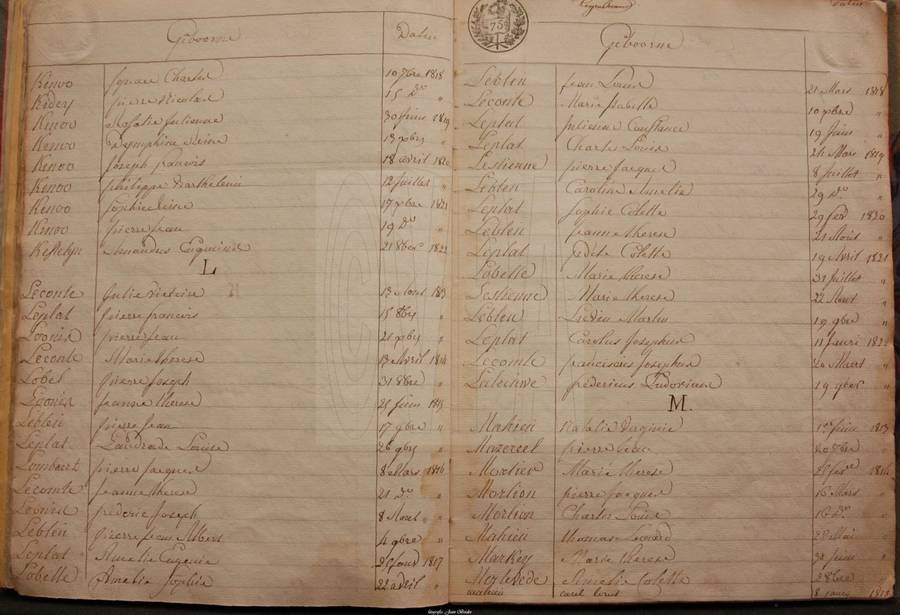 Geboorne Daten
Kenvo Ignace Charles 10 7bre 1818
Kidey pierre Nicolas 15 do "
Kenvo Rosalie Julienne 30 Juin 1819
Kenvo Dymphine 13 "
Kenvo Joseph francois 18 avril 1820
Kenvo philippe Barthelemi 12 Juillet "
Kenvo Sophie 17 1821
Kenvo pierre Jean 19 do "
Amandus Eugenius 21 8bre 1822
L
Leconte Julie 13 Aout 1813
Leplat pierre francois 15 8bre "
Loonis pierre Jean 21 "
Leconte Marie therese 13 Avril 1814
Lobel pierre Joseph 31 8bre "
Loonis Jeanne therese 21 Juin 1815
Leblen pierre Jean 17 9bre "
Leplat Landrade Louise 26 9bre "
Lombaert pierre Jacques 8 Mars 1816
Leconte Jeanne therese 21 do "
Loonis frederic Joseph 8 Aout "
Leblen pierre Jean Albert 4 9bre "
Leplat Amelie Eugenie 1817
Labelle Amelia Sophie 22 avril "
75
Daten
Geboorne
Leblen Jean Louis 21 Mars 1818
Leconte Marie Isabelle 10
Leplat Julienne Constance 19 Juin "
Leplat Charle Louis 24 Mai 1819
Lestienne pierre Jacques 8 Juillet "
Leblen Caroline Amelie 29 do "
Leplat Sophie Colette 29 fev 1820
Leblen Jeanne therese 21 Aout "
Leplat Colette 19 Avril 1821
Labelle Marie therese 31 Juillet "
Lestienne Marie therese 22 Aout "
Leblen Lieven Martin 19 9bre "
Leplat Carolus Josephus 11 Janvi 1822
Lecomte franciscus Josephus 20 Maert "
fredericus Ludovicus 19 "
M.
Mahieu Natalie Virginie 1er Juin 1813
Mazereel pierre Jean 20 "
Mortier Marie therese 1814
Mortion pierre Jacques 16 Mars "
Mortion Charles Louis 16 do "
Mahieu thomas Leonard 28 Mai "
Markey Marie therese 30 Juin "
Amelie Colette 2 8bre "
mahieu carel 8 1815